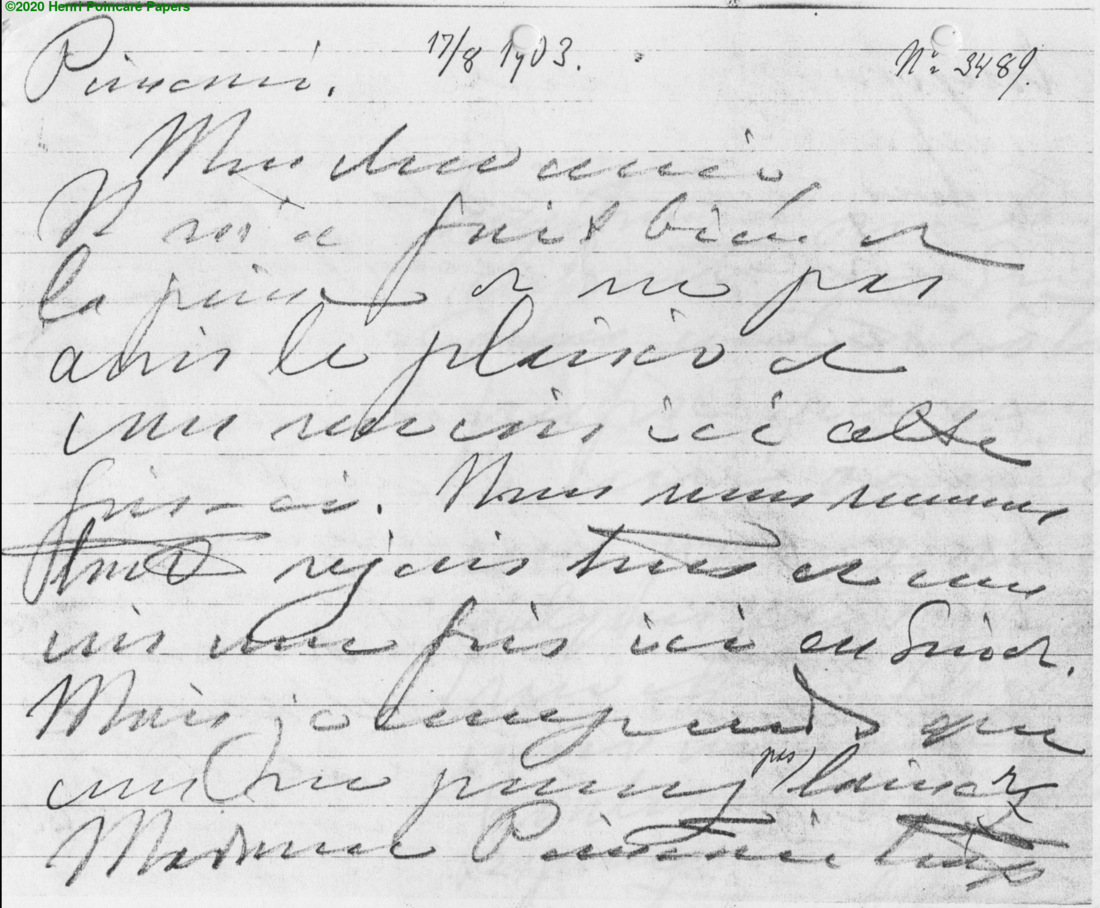 ©2020 Henri Poincaré Papers
Poincaré. 17/8 1903. No 3489.
Mon cher ami,
Il m'a fait bien de
la peine de ne pas
avoir le plaisir de
vous revoir ici cette
fois-ci. Nous nous sommes
rejouis tous de vous
voir une fois ici en Suède.
Mais je comprends que
vous ne pouvez pas laisser
Madame Poincaré